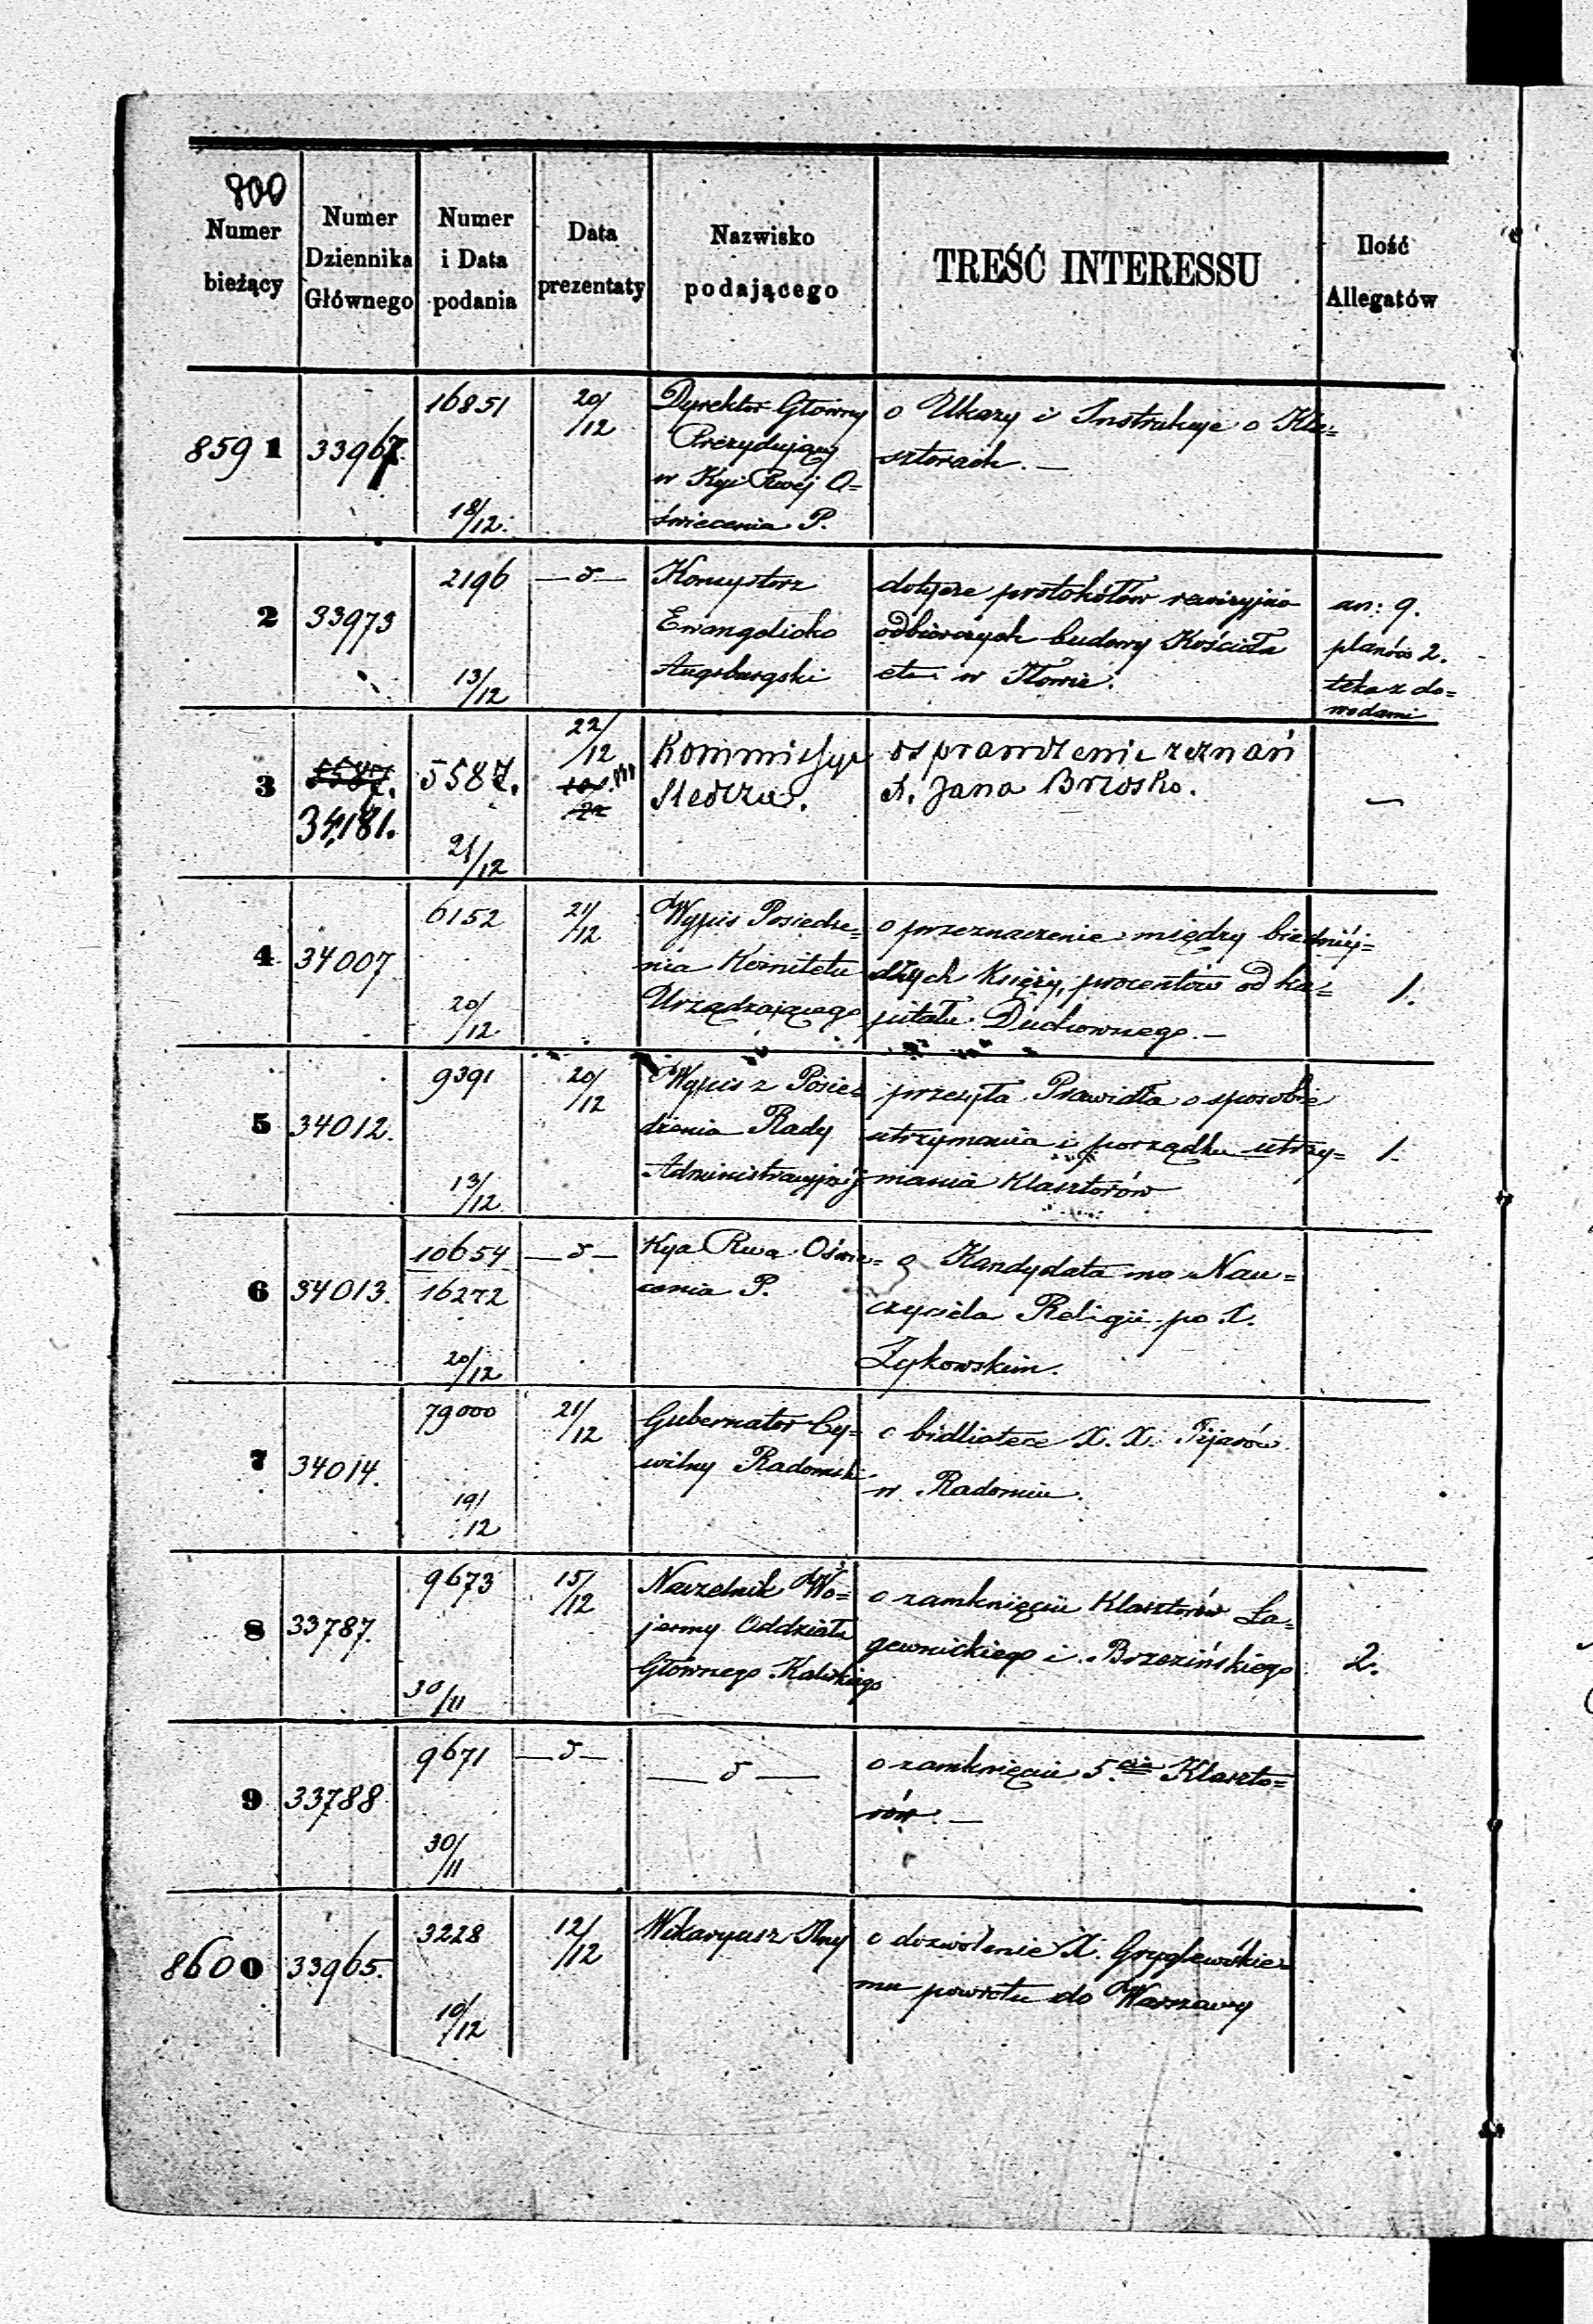 800
Numer bieżący
Numer Dziennika Głównego
Numer i Data podania
Data prezentaty
Nazwisko podającego
TREŚĆ INTERESSU
Ilość Allegatów
8591 33967 16851 18/12. 20/12
Dyrektor Główny
Prezydujący
w Kyi Rwéj O=
świecenia P.
o Ukazy i Instrukcye o Kla=
sztorach. —
2 33973 2196 13/12 — d —
Konsystorz
Ewangelicko
Augsburgski
dotycze protokółów rewizyjno
odbiorczych budowy Kościoła
etc. w Iłowie.
an: 9.
planów 2.
teka z do=
wodami
3 5587. 34181. 5587. 21/12 22/12
Kommissya
Śledcza.
o sprawdzenie zeznań
X. Jana Brzosko.
—
4 34007 6152 20/12 21/12
Wypis Posiedze=
nia Komitetu
Urządzającego
o przeznaczenie między biedniéj=
szych Księży, procentów od ka=
pitału Duchownego. —
1.
5 34012. 9391 13/12 20/12
Wypis z Posie=
dzenia Rady
Administracyjnéj
przesyła Prawidła o sposobie
utrzymania i porządku utrzy=
mania Klasztorów
1
6 34013. 10654 16272 20/12 — d —
Kya Rwa Oświe=
cenia P.
o Kandydata na Nau=
czyciela Religii po X.
Żykowskim.
7 34014. 79000 19/12 21/12
Gubernator Cy=
wilny Radomski
o bidliotece X. X. Pijarów
w Radomiu.
8 33787. 9673 30/11 15/12
Naczelnik Wo=
jenny Oddziału
Głównego Kaliskiego
o zamknięciu Klasztorów Ła=
gewnickiego i Brzezińskiego
2.
9 33788 9671 30/11 — d —
— d —
o zamknięciu 5.ciu Klaszto=
rów. —
8600 33965. 3228 10/12 12/12
Wikaryusz Klny
o dozwolenie X. Gryglewskie=
mu powrotu do Warszawy